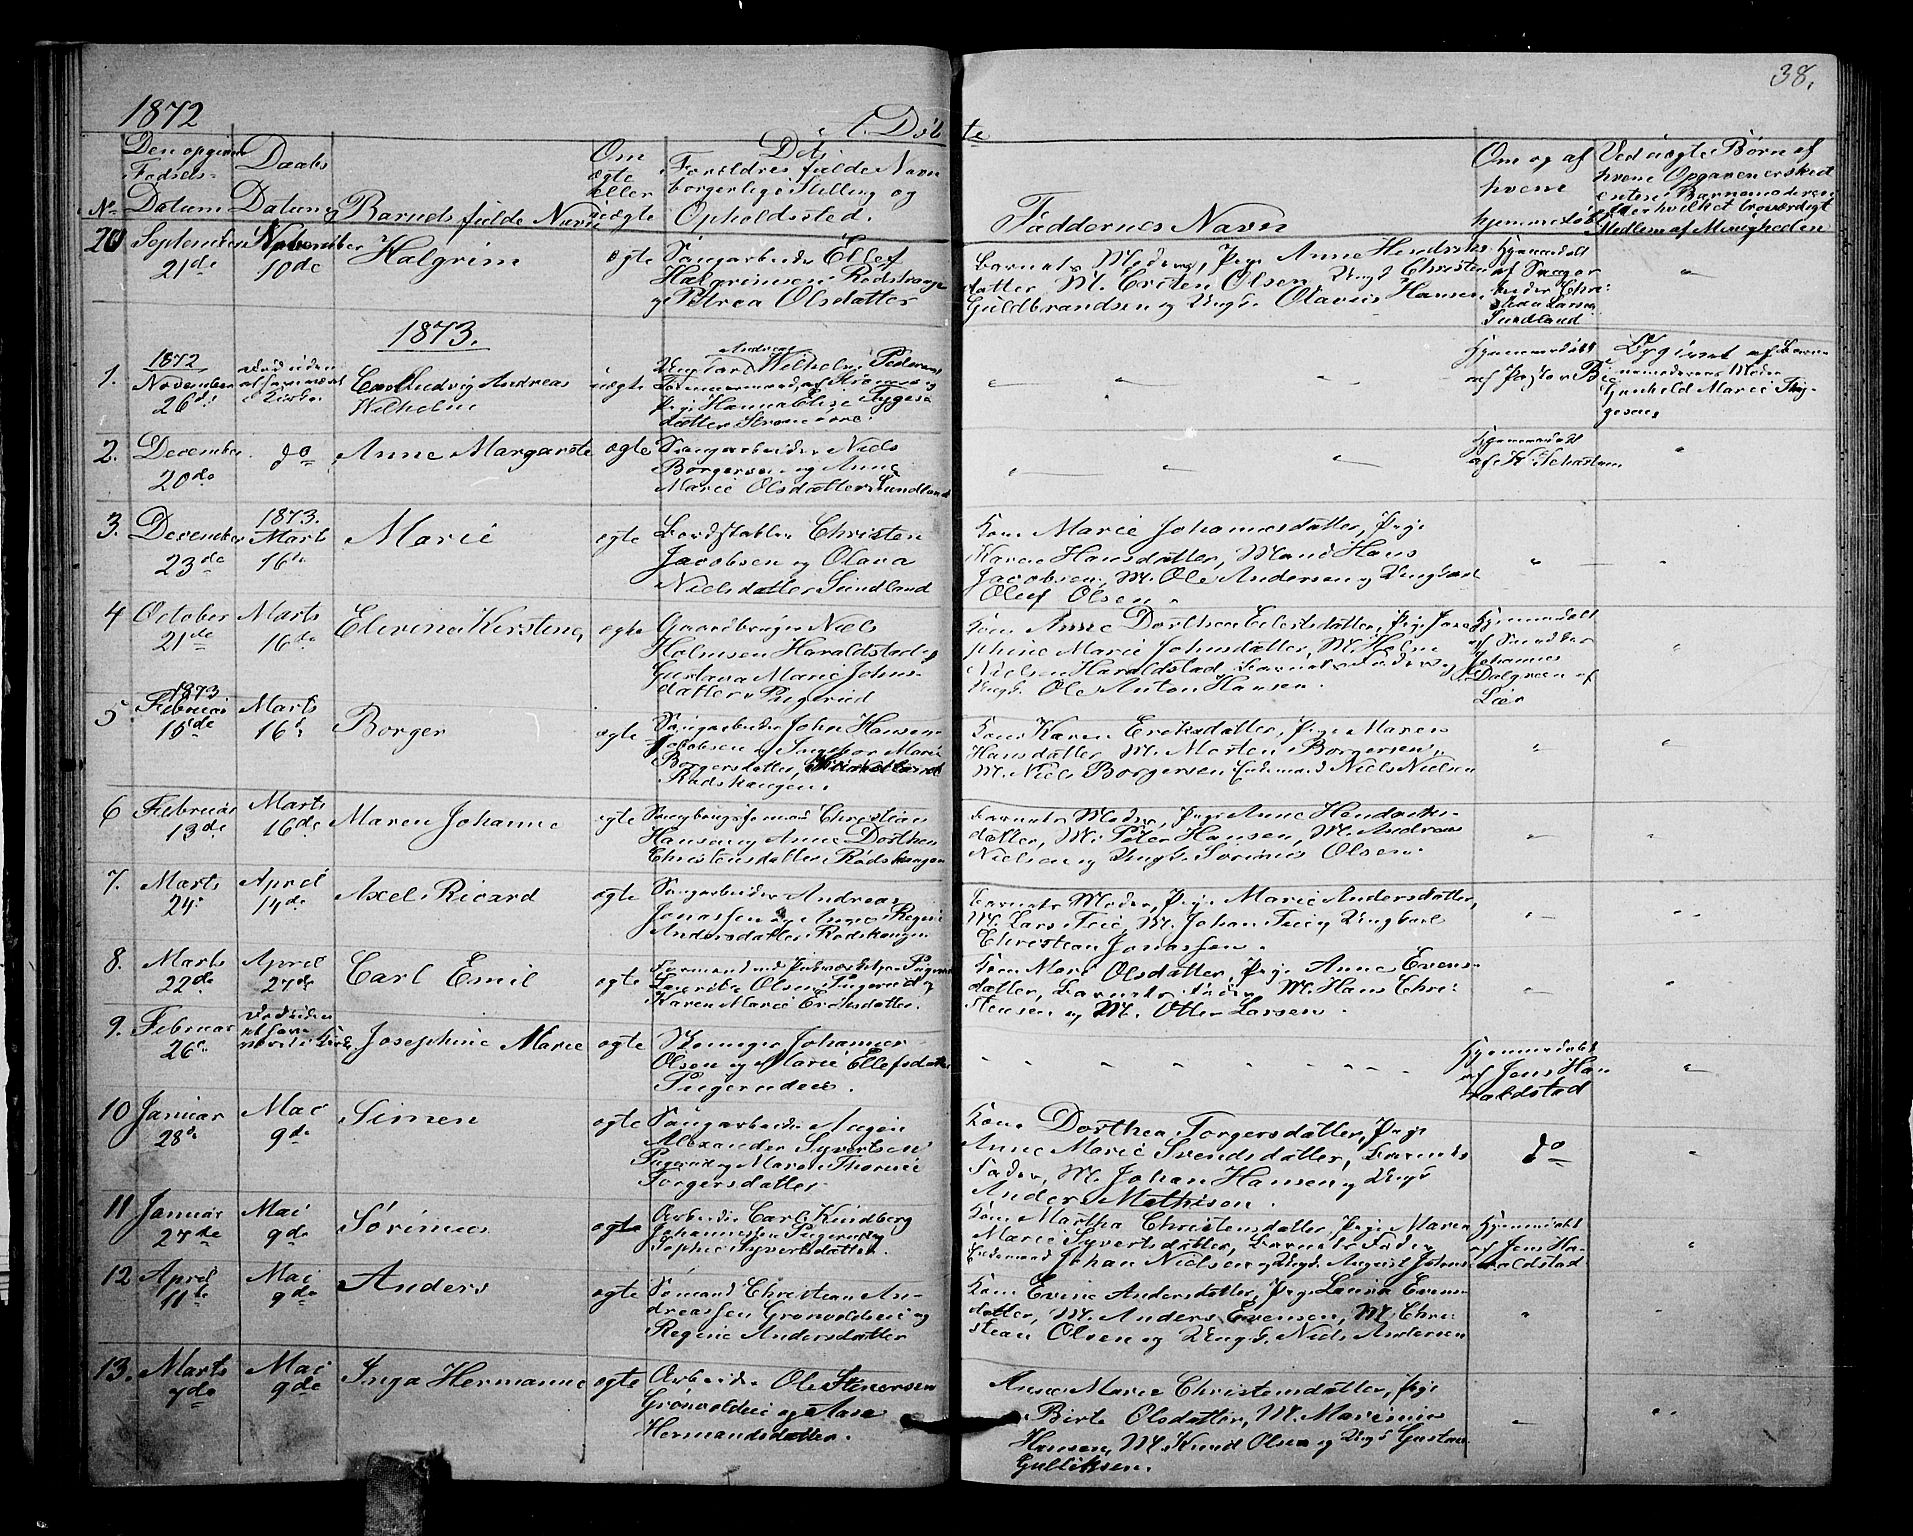 38.
1872
A. Døbte
No
Den opgivne Fødsels-Datum
Daabs Datum
Barnets fulde Navn
Om ægte eller uægte
Dets Forældres fulde Navn borgerlige Stilling og Opholdssted.
Faddernes Navn
Om og af hvem hjemmedøbt
Ved uægte Børn af hvem Opgaven er skeet enten Barnemoderen eller hvilket troværdigt Medlem af Menigheden
20
September 21de
November 10de
Halgrim
ægte
Saugarbeider Ellef
Halgrimsen Rødskougen
og Petrea Olsdatter
Barnets Moder, Pige Anne Hendriks-
datter, M. Cristen Olsen Ungk Christen
Guldbrandsen og Ungk. Olavus Hansen
Hjemmedøbt
af Saugar-
beider Chri-
stian Larsen
Sundland
"
1873.
1.
1872
November
26de
Carl Ludvig Andreas
Wilhelm
uægte
Andreas
Ungkarl Wilhelm Pedersen
Pige Hanna Elise Tygesdatter
Hjemmedøbt
af Pastor
Opgivet af Barnemoderens Moder
Gunhild Marie
2.
December
20de
do
Anne Margarete
ægte
Saugarbeider Niels
Borgersen og Anne
Marie Olsdatter Sundland
Hjemmedøbt
"
3.
December
23de
1873.
Marts
16de
Marie
ægte
Bordstabler Christen
Jacobsen og Olava
Nielsdatter Sundland
Kone Marie Johannesdatter, Pige
Karen Hansdatter, Mand Hans
Jacobsen, M. Ole Andersen og Ungkarl
Oluf Olsen.
"
4
October
21de
Marts
16de
Elevine Kirstine,
ægte
Gaardbruger Niels
Holmsen Haraldstad og
Gustava Marie Johns-
datter Pugerud
Kone Anne Dorthea Eilertsdatter, Pige Jose-
phine Marie Johnsdatter, M. Holm
Nielsen Haraldstad, Barnets Fader og
Ungk. Ole Anton Hansen.
Hjemmedøbt
af Snedker
Johannes
Dalgreen af
Lier
"
5
1873
Februar
15de
Marts
16de
Borger
ægte
Saugarbeider John Hansen
Jacobsen og Ingebor Marie
Borgersdatter,
Rødskougen.
Kone Karen Eriksdatter, Pige Maren
Hansdatter, M. Morten Borgersen,
M. Niels Borgersen Enkemand Niels Nielsen
"
6
Februar
13de
Marts
16de
Maren Johanne
ægte
Christian
Hansen og Anne Dorthea
Christensdatter Rødskougen
Barnets Moder, Pige Anne Hendriks-
datter, M. Peter Hansen, M. Andreas
Nielsen og Ungk. Sørinus Olsen.
"
7.
Marts
24.
April
14de
Axel Ricard
ægte
Saugarbeider Andreas
Jonassen og Anne Regine
Andersdatter Rødskougen
Barnets Moder, Pige Marie Andersdatter,
M. Lars Frie, M. Johan Frie og Ungkarl
Christian Jonassen.
"
8.
Marts
22de
April
27de
Carl Emil
ægte
Laurits Olsen Pugerud og
Karen Marie Eriksdatter.
Kone Mari Olsdatter, Pige Anne Evens-
datter, Barnets Fader, M. Hans Chri-
stensen og M. Otter Larsen.
"
9.
Februar
26de
Josephine Marie
ægte
Johannes
Olsen og Marie Ellefsdatter
Pugerudeie.
Hjemmedøbt
af Jens Ha-
raldstad
"
10
Januar
28de
Mai
9de
Simen
ægte
Saugarbeider August
Alexander Syvertsen
Pugerud og Maren Thorine
Torgersdatter
Kone Dorthea Torgersdatter, Pige
Anne Marie Svendsdatter, Barnets
Fader, M. Johan Hansen og Ungk
Anders Mathisen.
do
"
11
Januar
27de
Mai
9de
Sørinus
ægte
Arbeider Carl Kindberg
Johannessen Pugerud og
Sophie Syvertsdatter.
Kone Martha Christensdatter, Pige Maren
Marie Syvertsdatter, Barnets Fader
Enkemand Johan Nielsen og Ungk. August Johns.
Hjemmedøbt
af Jens Ha-
raldstad
"
12
April
11te
Mai
9de
Anders
ægte
Sømand Christian An-
dreassen Grønvoldeie og
Regine Andersdatter
Kone Evine Andersdatter, Pige Laura Evens-
datter, M. Anders Evensen, M. Chri-
stian Olsen og Ungk. Niels Andersen
"
13.
Marts
7de
Mai
9de
Inga Hermanne
ægte
Arbeider Ole Stenersen
Grønvoldeie og Aase
Hermandsdatter.
Anne Marie Christensdatter, Pige
Birte Olsdatter, M. Maximius
Hansen, M. Knud Olsen og Ungk Gustav
Gulliksen.
"